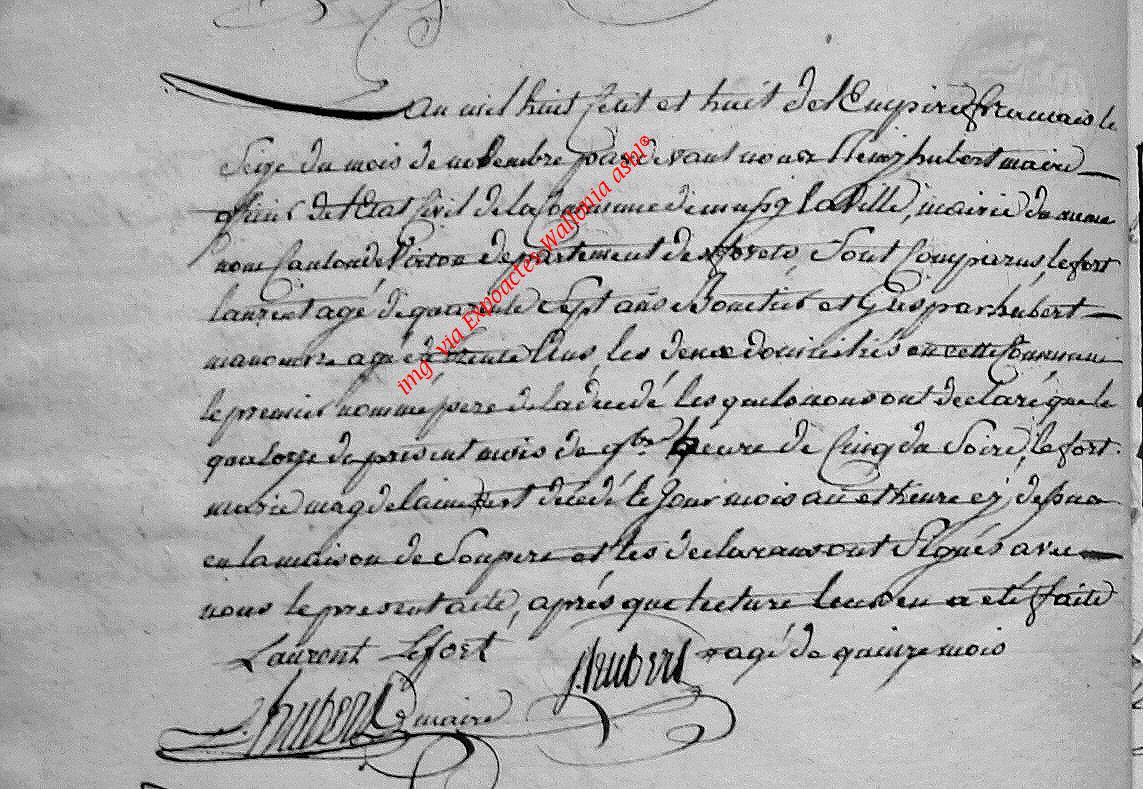 an mil huit cent et huit de l'Empire francais le
Seize du mois de novembre pardevant nous Remy hubert maire
officier de l'Etat Civil de la Commune de mussy la Ville, mairie du meme
nom Canton de Virton departement des forets Sont Comparus, lefort
laurent agé de quarante Sept ans et Gaspar hubert
manouvre agé de trente Ans, les deux domiciliés en cette Commune
le premier nommé pere de la decedé, les quels nous ont declaré que le
quatorze du present mois de 9bre heure de Cinq du Soire, lefort
marie magdelaine est decedé le Jour mois an et heure cy dessus
en la maison de Son pere et les declarans ont Signés avec
nous le present acte, après que lecture leur en a eté faite
Laurent Lefort
J. hubert
agé de quinze mois
hubert maire
img via Expoactes Wallonia asbl®